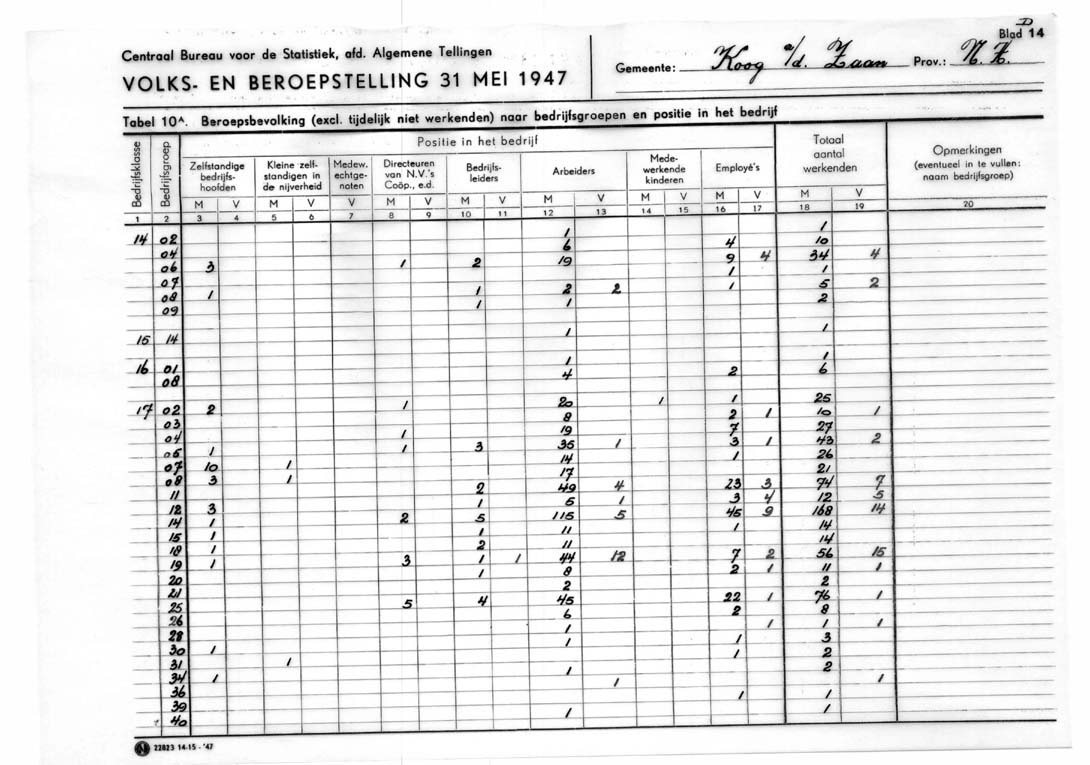 Blad D 14
Centraal Bureau voor de Statistiek, afd. Algemene Tellingen
VOLKS- EN BEROEPSTELLING 31 MEI 1947
Gemeente: Koog a/d. Zaan Prov.: N.H.
Tabel 10A. Beroepsbevolking (excl. tijdelijk niet werkenden) naar bedrijfsgroepen en positie in het bedrijf
Bedrijfsklasse Bedrijfsgroep Positie in het bedrijf Totaal aantal werkenden Opmerkingen (eventueel in te vullen: naam bedrijfsgroep)
Zelfstandige bedrijfs-hoofden Kleine zelf-standigen in de nijverheid Medew. echtge-noten Directeuren van N.V.'s Coöp., e.d. Bedrijfs-leiders Arbeiders Mede-werkende kinderen Employé's
M V M V V M V M V M V M V M V M V
1 2 3 4 5 6 7 8 9 10 11 12 13 14 15 16 17 18 19 20
14 02 1 1
04 6 4 10
06 3 1 2 19 9 4 34 4
07 1 1
08 1 1 2 2 1 5 2
09 1 1 2
15 14 1 1
16 01 1 1
08 4 2 6
17 02 2 1 20 1 1 25
03 8 2 1 10 1
04 1 19 7 27
05 1 1 3 35 1 3 1 43 2
07 10 1 14 1 26
08 3 1 17 21
11 2 49 4 23 3 74 7
12 3 1 5 1 3 4 12 5
14 1 2 5 115 5 45 9 168 14
15 1 1 11 1 14
18 1 2 11 14
19 1 3 1 1 44 12 7 2 56 15
20 1 8 2 1 11 1
21 2 2
25 5 4 45 22 1 76 1
26 6 2 8
28 1 1 1 1
30 1 1 1 3
31 1 1 2
34 1 1 2
36 1 1
39 1 1
40 1 1
N 22823 14-15 - '47